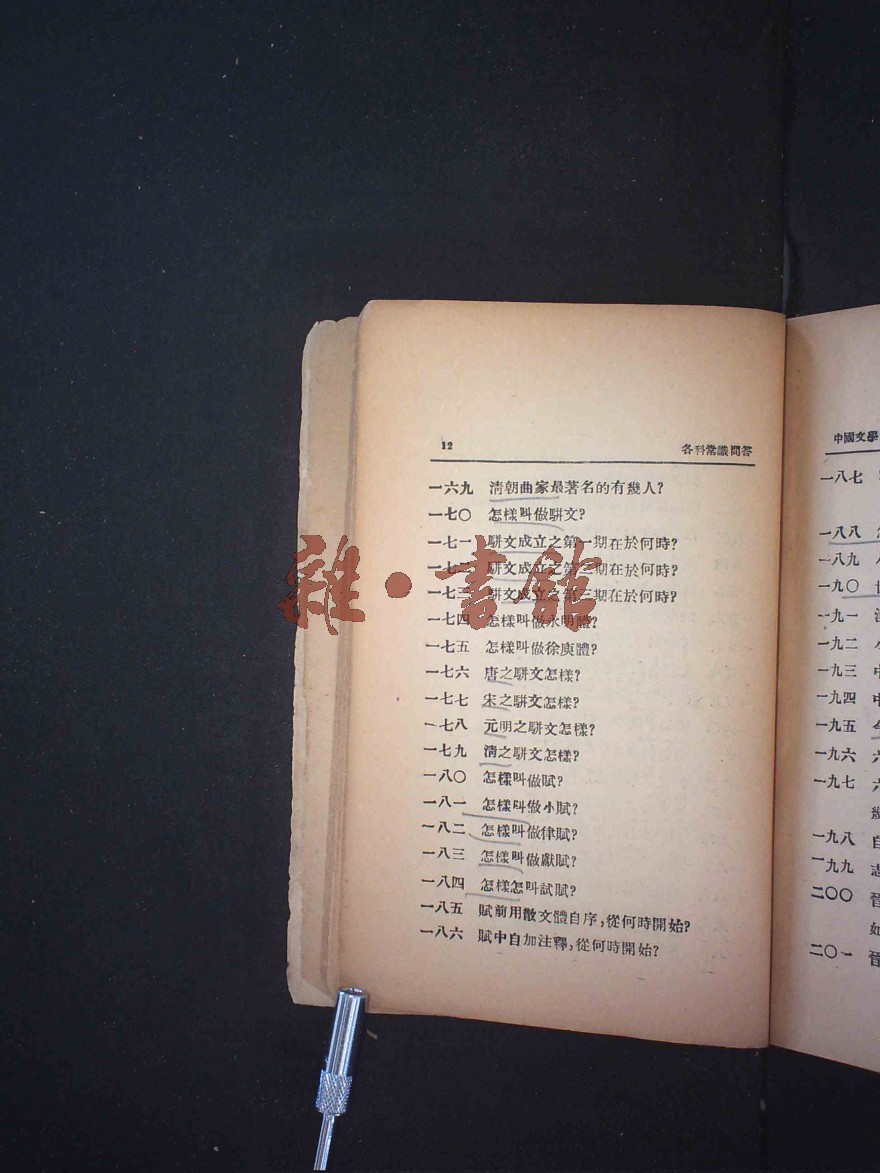 12
各科常識問答
一六九 清朝曲家最著名的有幾人?
一七〇 怎樣叫做駢文?
一七一 駢文成立之第一期在於何時?
一七二 駢文成立之第二期在於何時?
一七三 駢文成立之第三期在於何時?
一七四 怎樣叫做永明體?
一七五 怎樣叫做徐庾體?
一七六 唐之駢文怎樣?
一七七 宋之駢文怎樣?
一七八 元明之駢文怎樣?
一七九 清之駢文怎樣?
一八〇 怎樣叫做賦?
一八一 怎樣叫做小賦?
一八二 怎樣叫做律賦?
一八三 怎樣叫做獻賦?
一八四 怎樣怎叫試賦?
一八五 賦前用散文體自序,從何時開始?
一八六 賦中自加注釋,從何時開始?
雜·書館
中國文學
一八七
一八八
一八九
一九〇
一九一
一九二
一九三 中
一九四 中
一九五
一九六 六
一九七 六
幾
一九八 自
一九九 志
二〇〇 晉
如
二〇一 晉